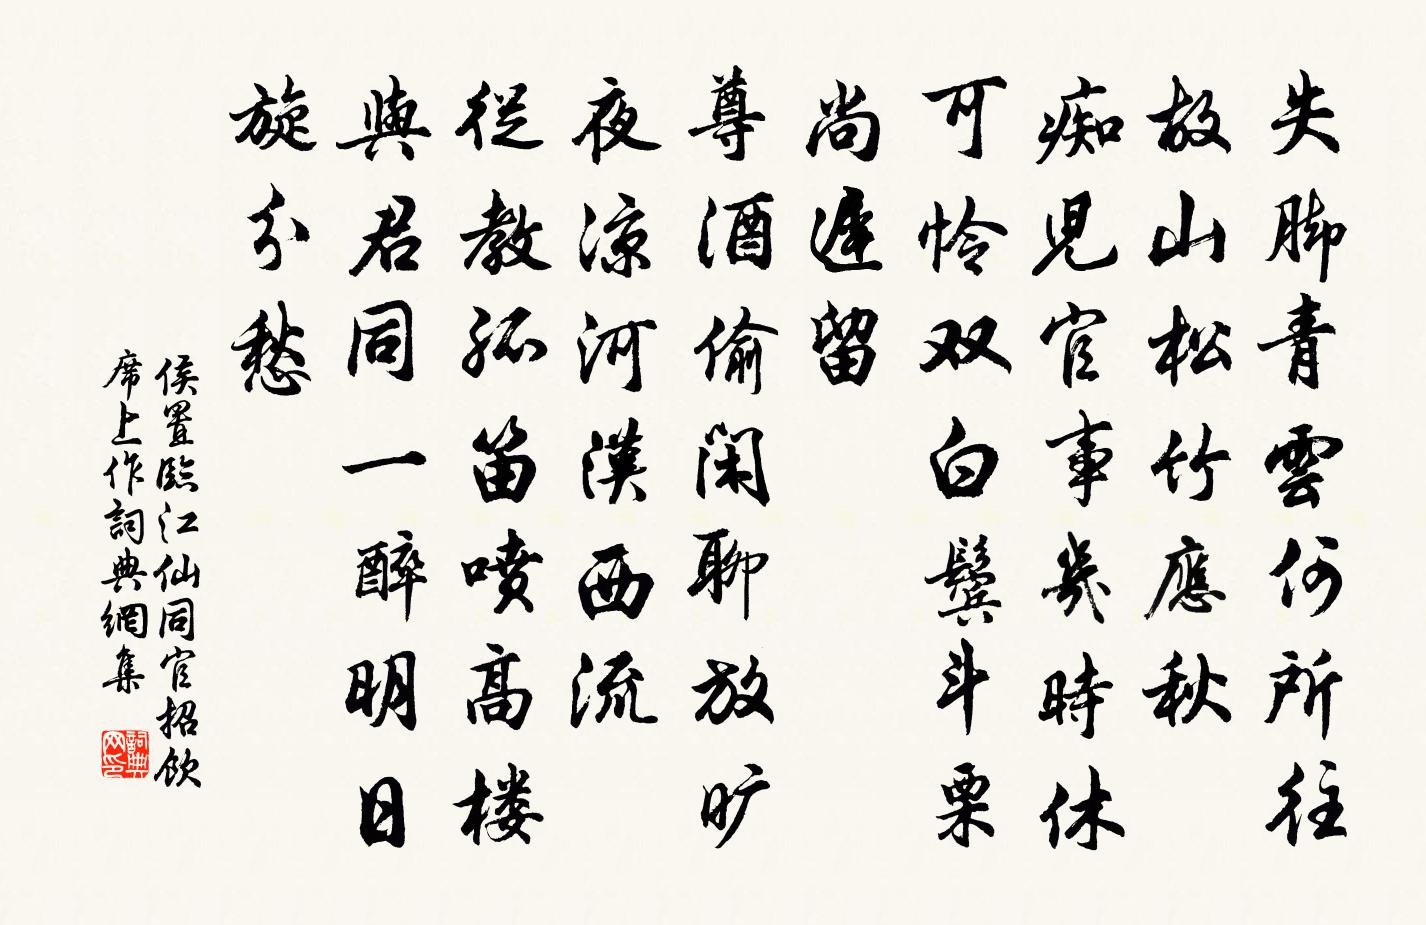 失脚青雲何所往
故山松竹應秋
痴児官事幾時休
可怜双白鬓斗栗
尚遲留
尊酒偷闲聊放旷
夜凉河漢西流
從教孤笛喷高楼
與君同一醉明日
旋分愁
侯置臨江仙同官招飲
席上作詞典網集
詞典网印